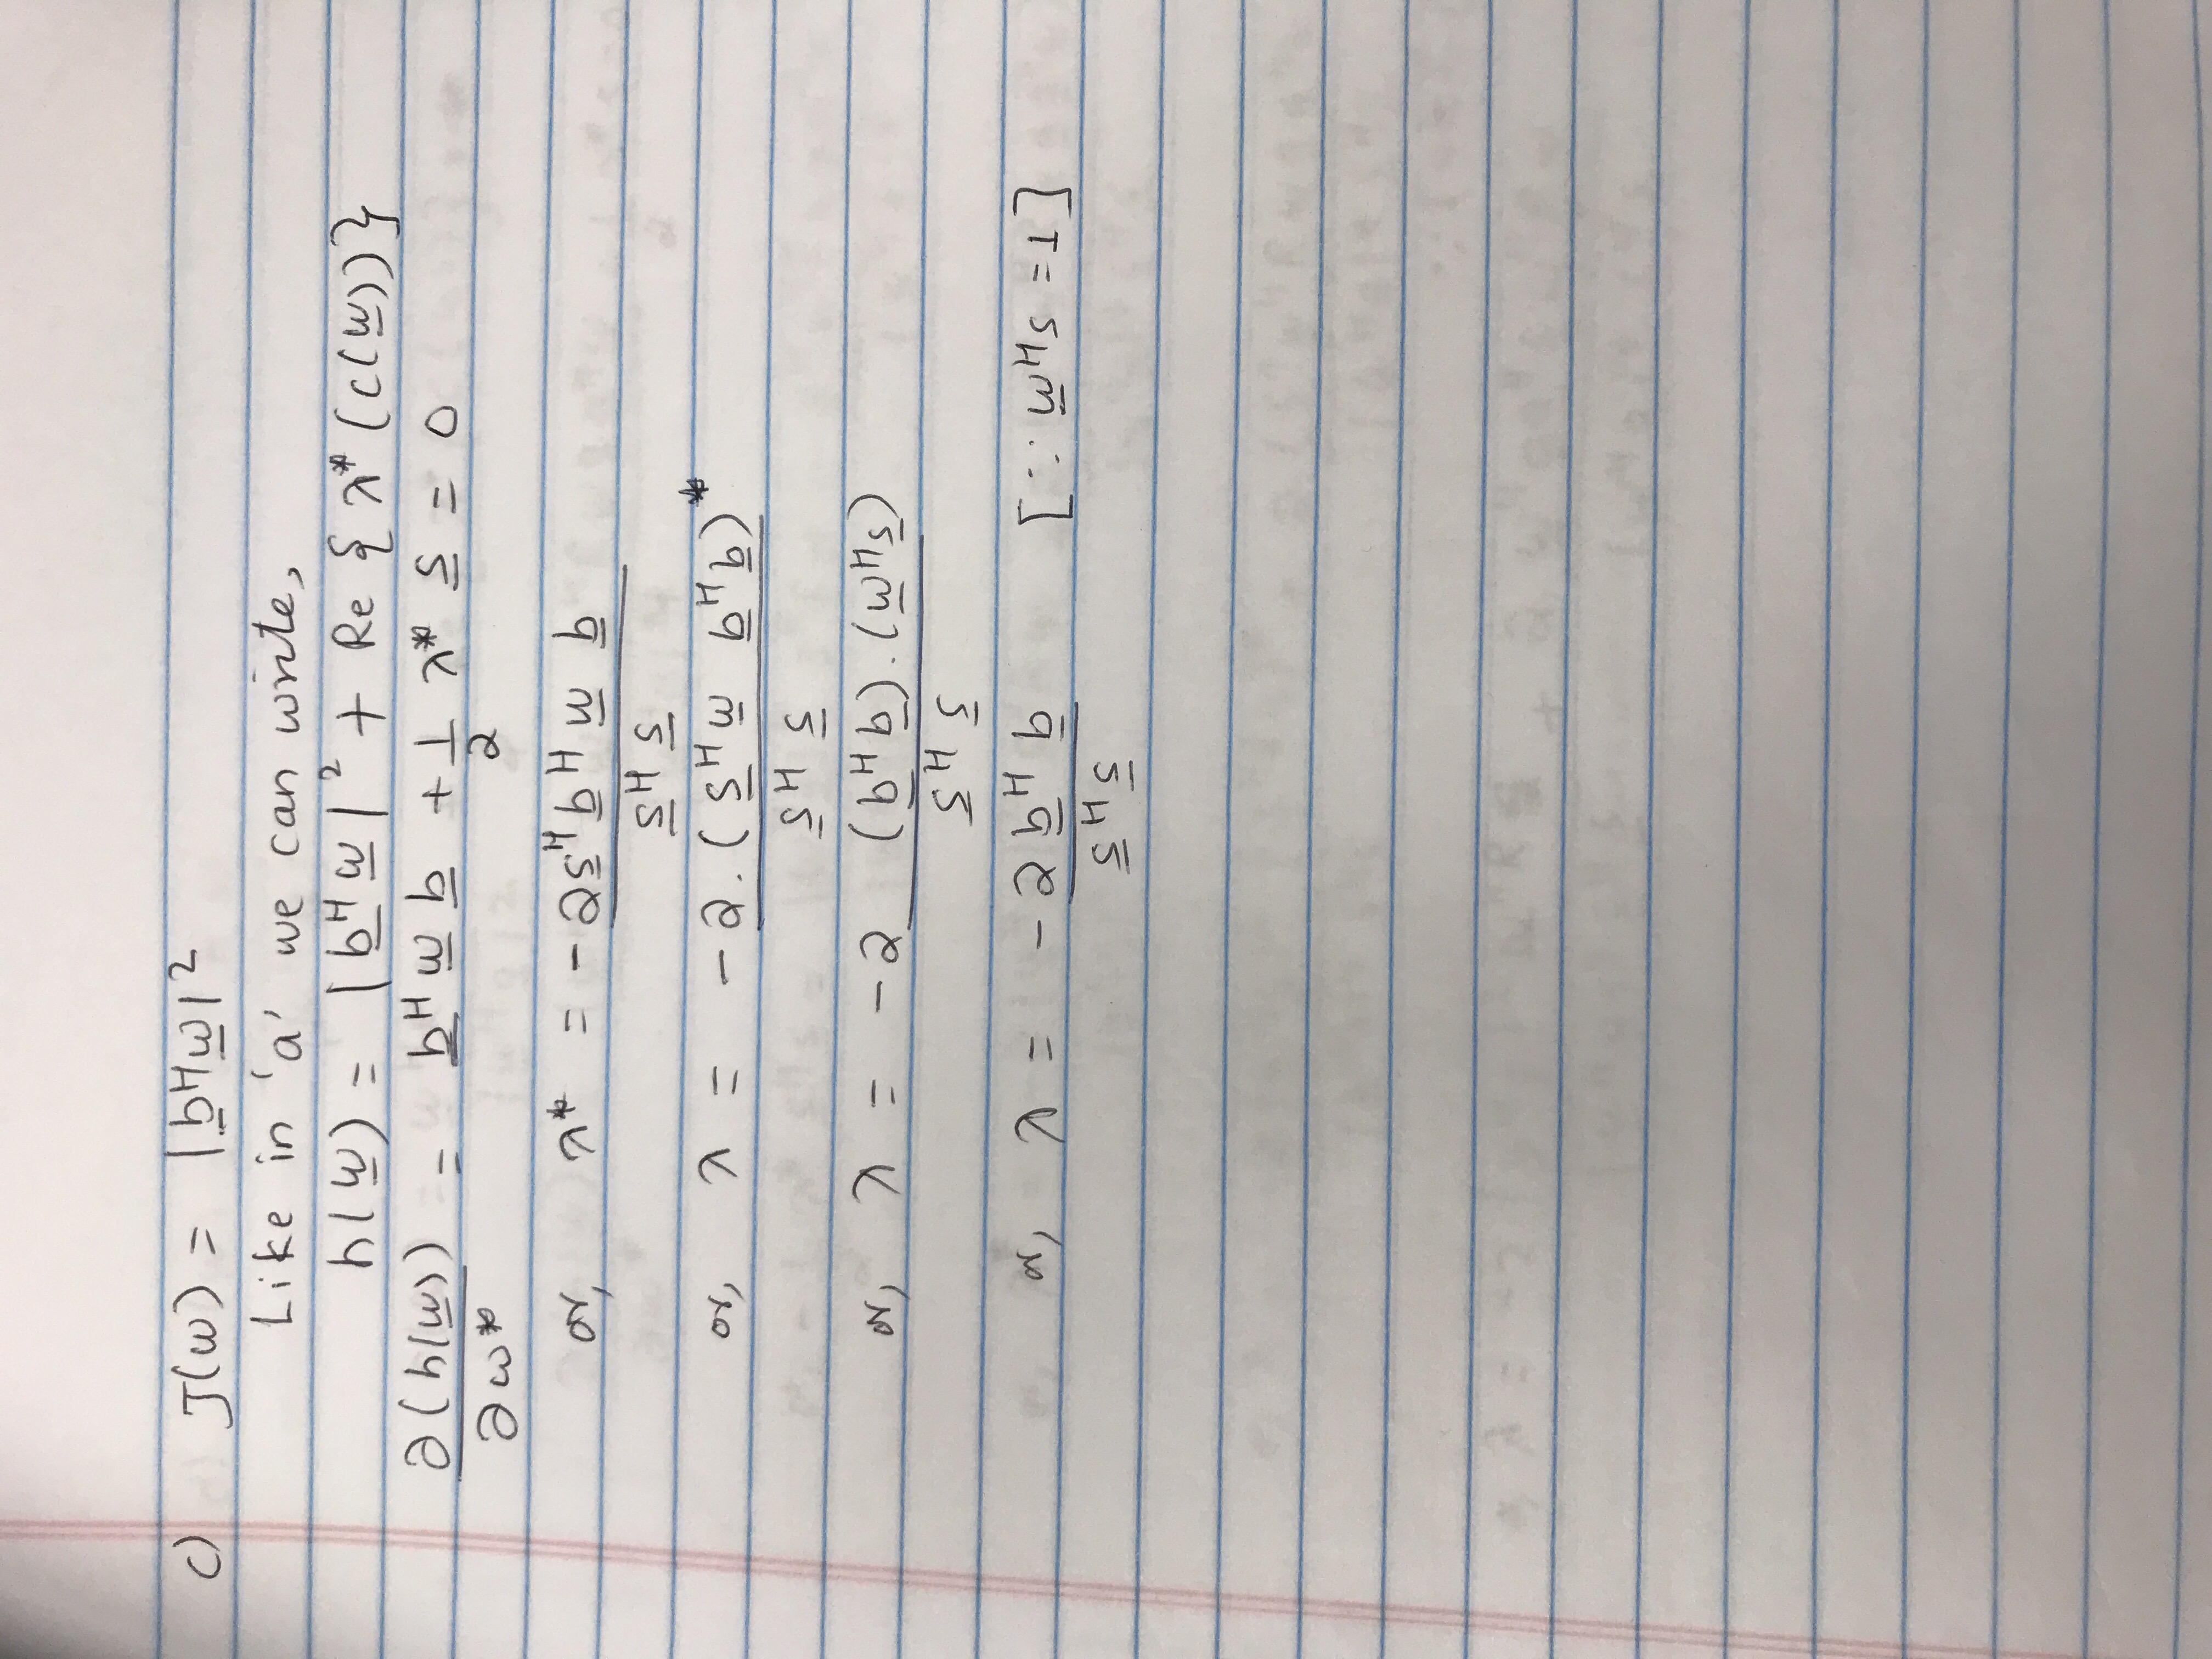 c) J(w) = |b^H w|^2
Like in 'a' we can write,
h(w) = |b^H w|^2 + Re {λ* (c(w))}
∂(h(w))/∂w* = b^H w b + 1/2 λ* s = 0
or, λ* = -2s^H b^H w b / s^H s
or, λ = -2. (s^H w b^H b)* / s^H s
or, λ = -2 (b^H b).(w^H s) / s^H s
or, λ = -2 b^H b / s^H s [∵ w^H s = 1]